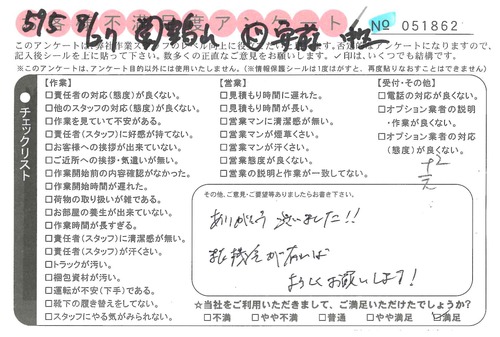 お客様不満足度アンケート
№ 051862
このアンケートに
記入後シールを上に貼って下さい。数多くの正直なご意見をお願いします。✓印は、いくつでも結構です。
※このアンケートは、アンケート目的以外には使用いたしません。(※情報保護シールは1度はがすと、再度貼りなおすことはできません)
チェックリスト
【作業】
□責任者の対応(態度)が良くない。
□他のスタッフの対応(態度)が良くない。
□作業を見ていて不安がある。
□責任者(スタッフ)に好感が持てない。
□お客様への挨拶が出来ていない。
□ご近所への挨拶・気遣いが無い。
□作業開始前の内容確認がなかった。
□作業開始時間が遅れた。
□荷物の取り扱いが雑である。
□お部屋の養生が出来ていない。
□作業時間が長すぎる。
□責任者(スタッフ)に清潔感が無い。
□責任者(スタッフ)が汗くさい。
□トラックが汚い。
□梱包資材が汚い。
□運転が不安(下手)である。
□靴下の履き替えをしてない。
□スタッフにやる気がみられない。
【営業】
□見積もり時間に遅れた。
□見積もり時間が長い。
□営業マンに清潔感が無い。
□営業マンが煙草くさい。
□営業マンが汗くさい。
□営業態度が良くない。
□営業の説明と作業が一致してない。
【受付・その他】
□電話の対応が良くない。
□オプション業者の説明
・作業が良くない。
□オプション業者の対応
(態度)が良くない。
その他、ご意見・ご要望等ありましたらお書き下さい。
ありがとう ざいました!!
また機会が有れば
よろしくお願いします!
☆当社をご利用いただきまして、ご満足いただけたでしょうか?
□不満 □やや不満 □普通 □やや満足 ☑満足